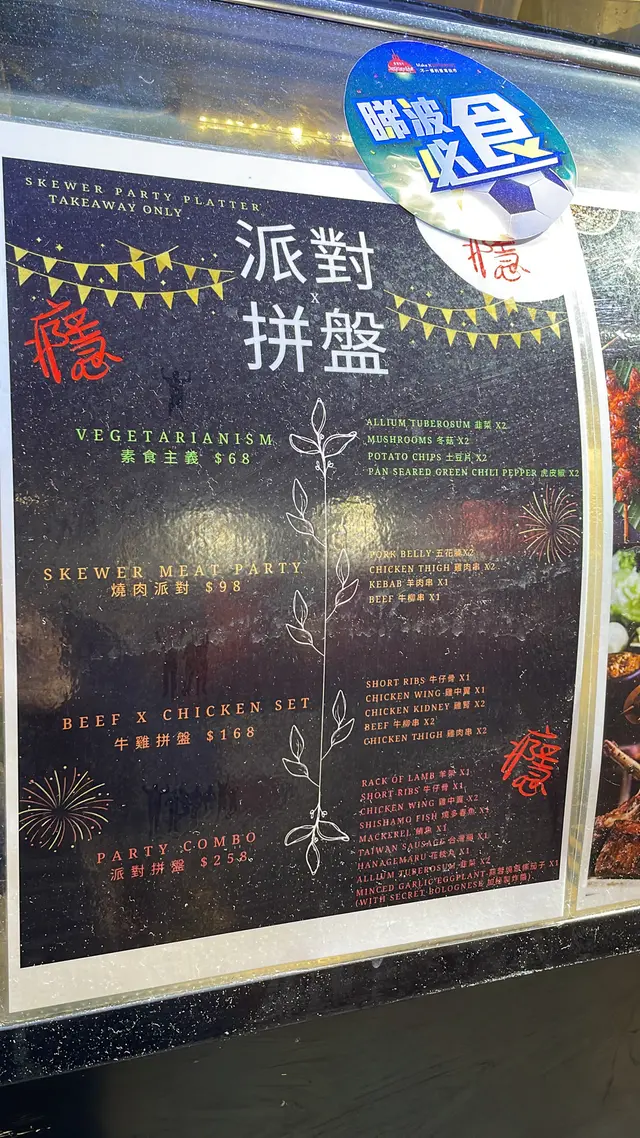 睇波
必食
SKEWER PARTY PLATTER
TAKEAWAY ONLY
派對
x
拼盤
癮
癮
VEGETARIANISM
素食主義 $68
ALLIUM TUBEROSUM 韭菜 X2
MUSHROOMS 冬菇 X2
POTATO CHIPS 土豆片 X2
PAN SEARED GREEN CHILI PEPPER 虎皮椒 X2
SKEWER MEAT PARTY
燒肉派對 $98
PORK BELLY 五花腩X2
CHICKEN THIGH 雞肉串 X2
KEBAB 羊肉串 X1
BEEF 牛柳串 X1
BEEF X CHICKEN SET
牛雞拼盤 $168
SHORT RIBS 牛仔骨 X1
CHICKEN WING 雞中翼 X1
CHICKEN KIDNEY 雞腎 X2
BEEF 牛柳串 X2
CHICKEN THIGH 雞肉串 X2
癮
PARTY COMBO
派對拼盤 $258
RACK OF LAMB 羊架 X1
SHORT RIBS 牛仔骨 X1
CHICKEN WING 雞中翼 X2
SHISHAMO FISH 燒多春魚 X1
MACKEREL 鯖魚 X1
TAIWAN SAUSAGE 台灣腸 X1
HANAGEMARU 花枝丸 X1
ALLIUM TUBEROSUM 韭菜 X2
MINCED GARLIC EGGPLANT 茄子 X1
(WITH SECRET BOLOGNESE 秘製炸醬)